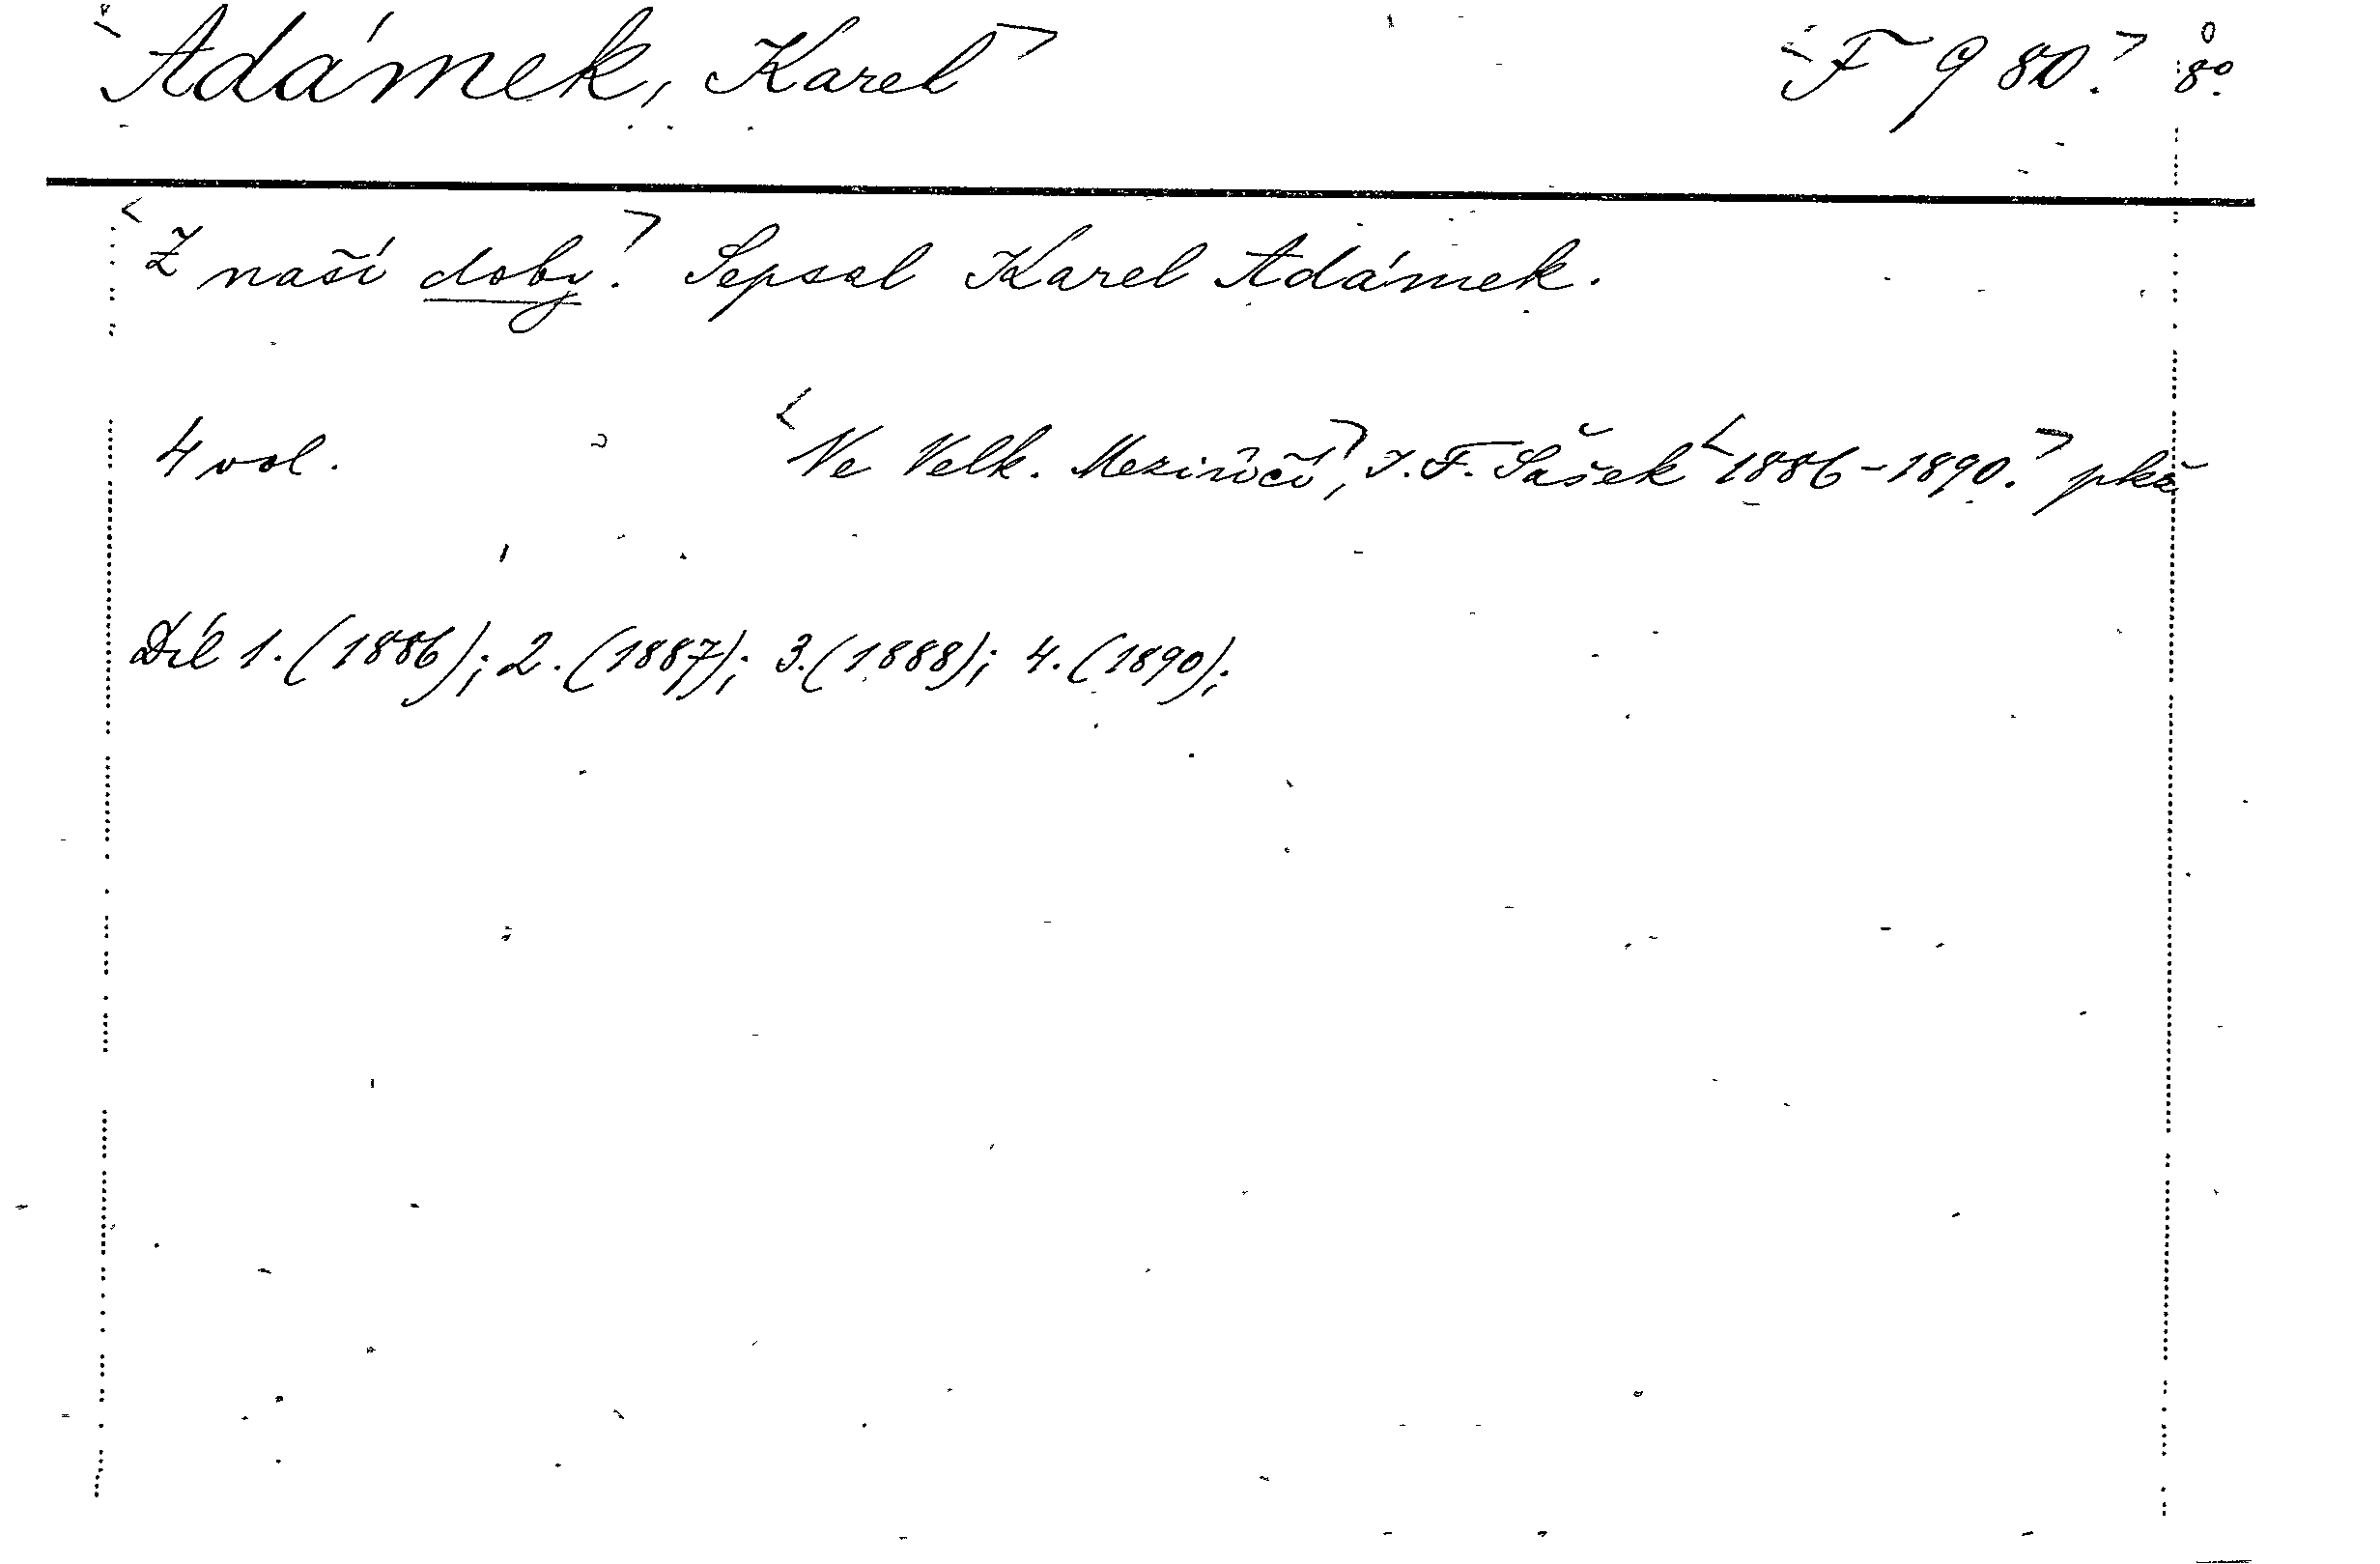 <Adámek, Karel> <F 980.> 8°.
<Z naší doby.> Sepsal Karel Adámek.
4 vol. <Ve Velk. Meziříčí>, J. F. Šašek <1886-1890.> pkč
Díl 1. (1886); 2. (1887); 3. (1888); 4. (1890);